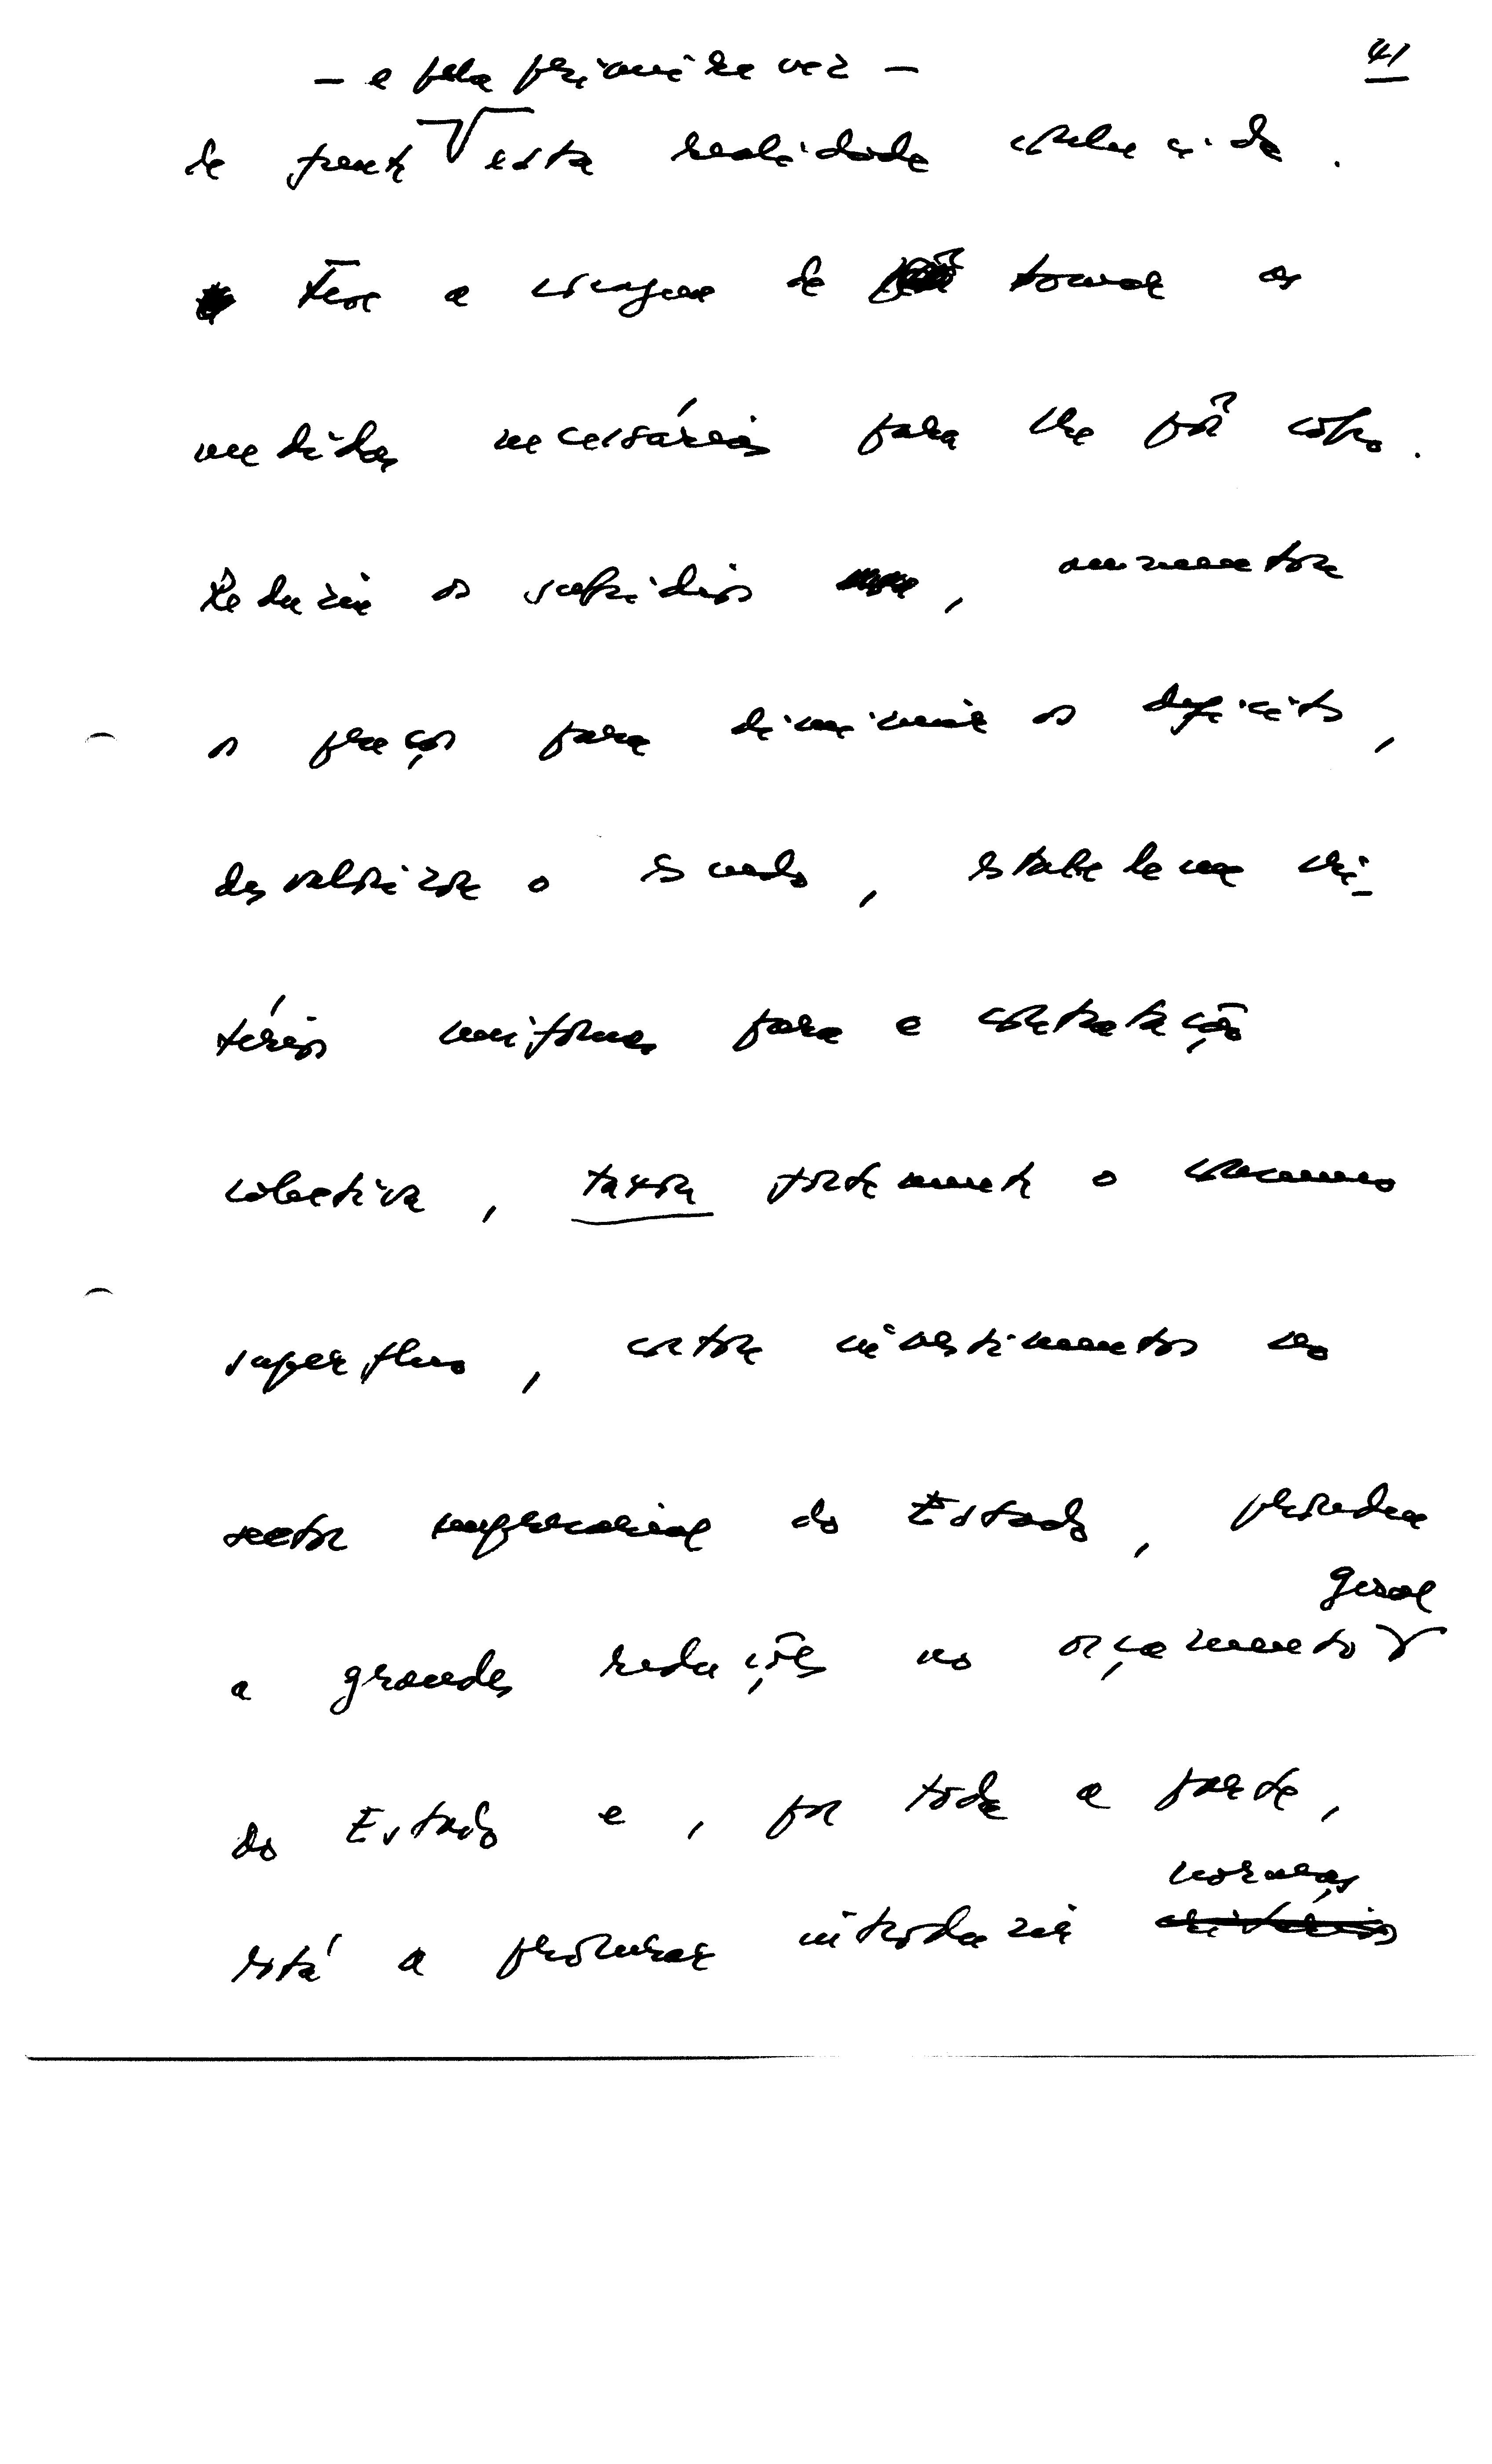 41
— e pela primeira vez —
de frente esta realidade
Teve a coragem de tomar as
medidas necessárias para lhe pôr cobro.
Reduziu os subsídios, aumentou
os preços para diminuir os deficits,
desvalorizou o Escudo, estabeleceu cri-
térios uniformes para a contratação
colectiva, taxou fortemente o consumo
superfluo, cortou investimentos no
sector empresarial do Estado, procedeu
geral
a grandes reduções no orçamento
do Estado e, por toda a parte,
normas
está a procurar introduzir critérios